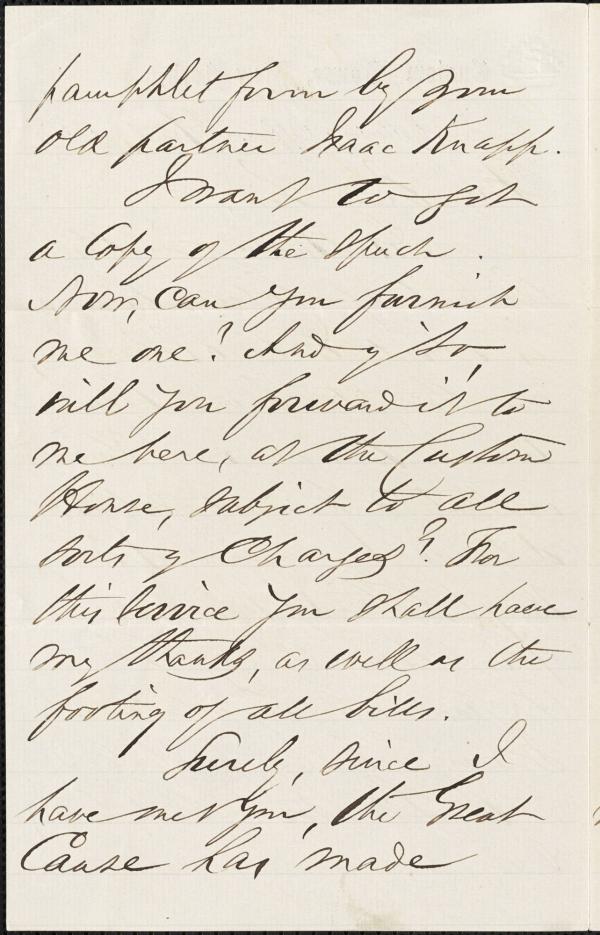 pamphlet form by your
old partner Isaac Knapp.
I want to get
a Copy of the speech.
Now, can you furnish
me one? And if so,
will you forward it to
me here, at the Custom
House, subject to all
sorts of Charges? For
this service you shall have
my thanks, as well as the
footing of all bills.
Surely, since I
have met you, the Great
Cause has made